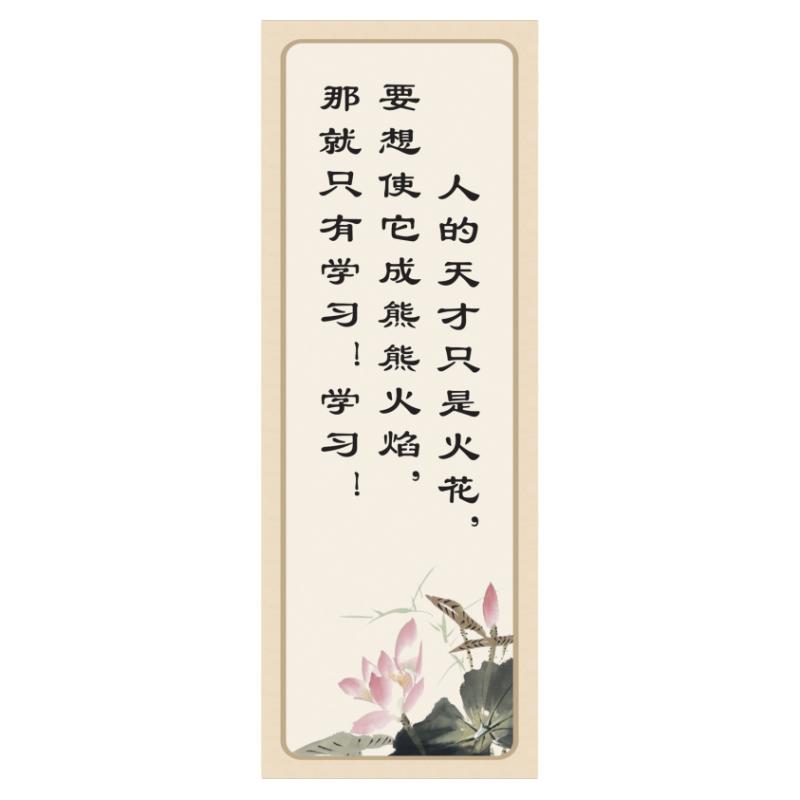 人的天才只是火花，
要想使它成熊熊火焰，
那就只有学习！学习！